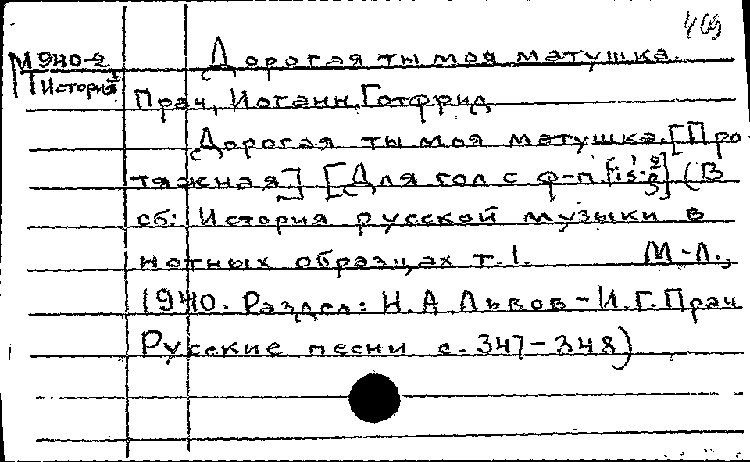 М 940-2 Дорогая ты моя матушка.
История
Прач, Иоганн Готфрид
Дорогая ты моя матушка. [Про
тяжная] [Для гол с ф-п.] (В
сб: История русской музыки в
нотных образцах т. 1. М-Л.,
1940. Раздел: Н.А. Львов - И.Г. Прач
Русские песни с. 347-348)